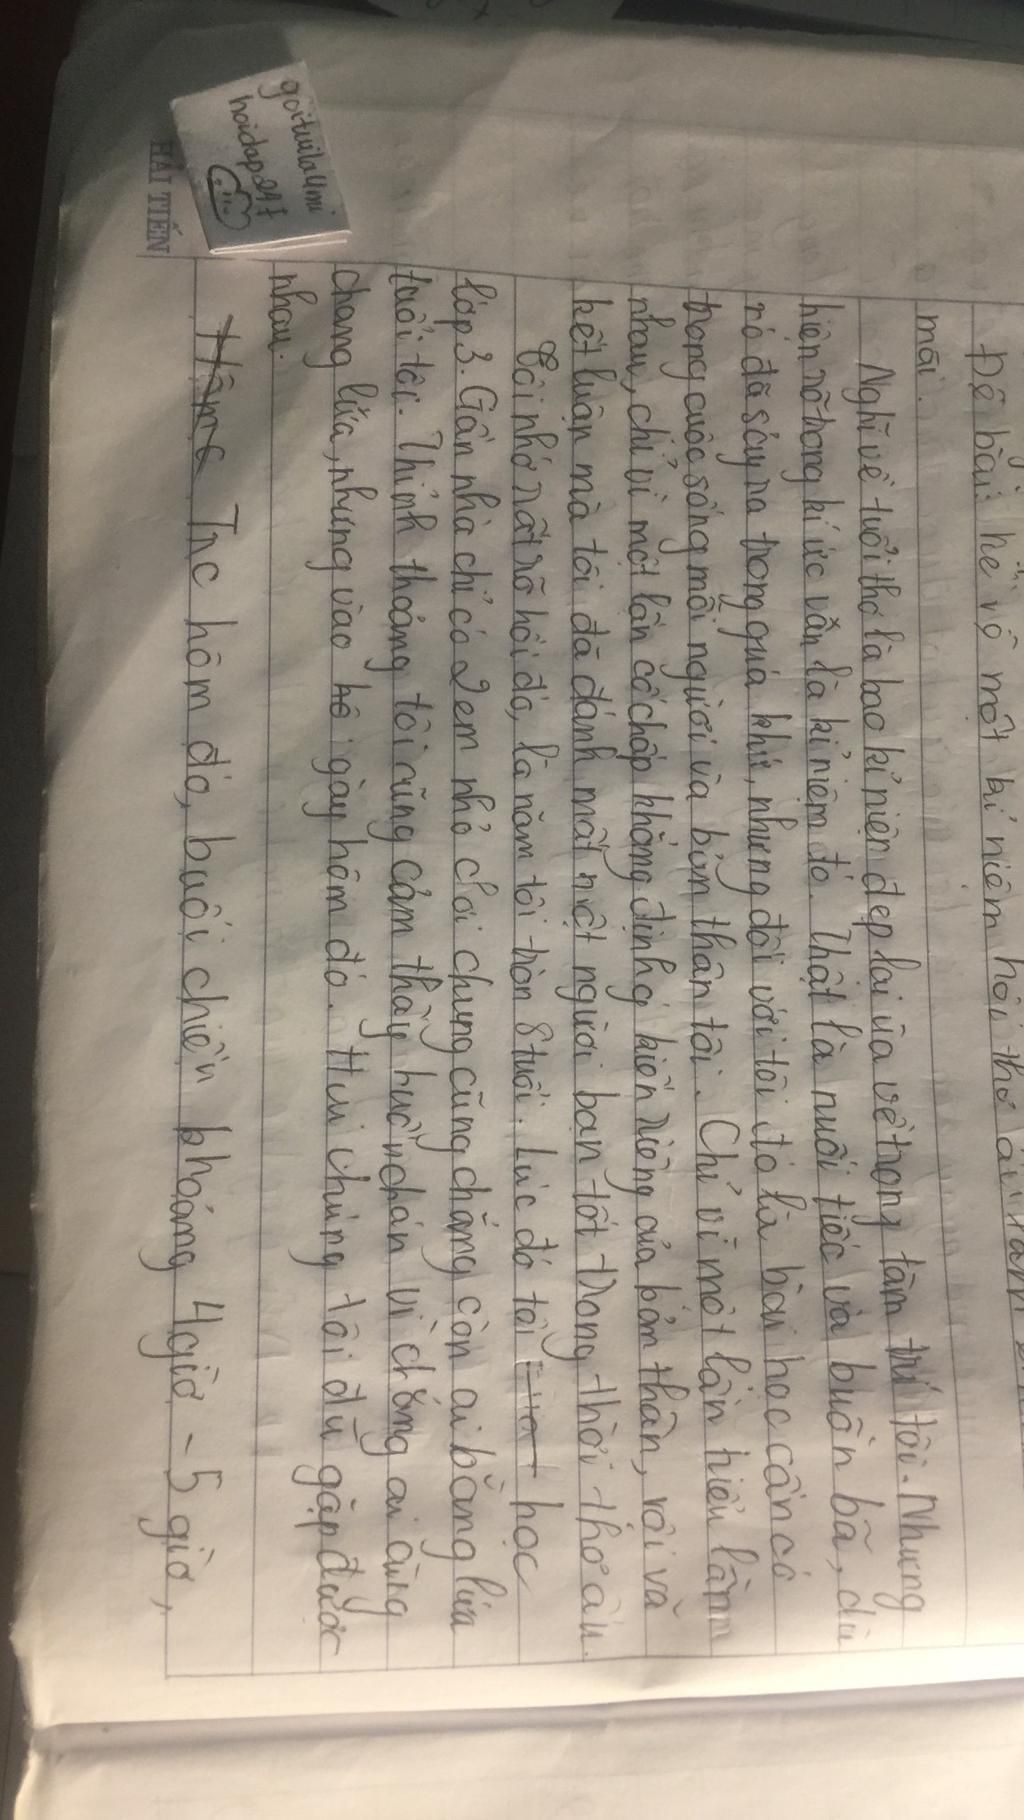 Đề bài: kể về một kỉ niệm hồi thơ ấu
mãi.
Nghĩ về tuổi thơ là bao kỉ niện đẹp lại ùa về trong tâm trí tôi. Nhưng
hiện rõ trong kí ức vẫn là kỉ niệm đó. Thật là nuối tiếc và buồn bã, dù
nó đã sảy ra trong quá khứ, nhưng đối với tôi đó là bài học cần có
trong cuộc sống mỗi người và bản thân tôi. Chỉ vì một lần hiểu lầm
nhau, chỉ vì một lần cố chấp khẳng định ý kiến riêng của bản thân, vội và
kết luận mà tôi đã đánh mất một người bạn tốt trong thời thơ ấu.
Tôi nhớ rất rõ hồi đó, là năm tôi tròn 8 tuổi. Lúc đó tôi học
lớp 3. Gần nhà chỉ có 2 em nhỏ chơi chung cũng chẳng còn ai bằng lứa
tuổi tôi. Thỉnh thoảng tôi cũng cảm thấy buồn chán vì chẳng ai cùng
chang lứa, nhưng vào gày hôm đó. Hai chúng tôi đã gặp được
nhau.
Trc hôm đó, buổi chiền khoảng 4giờ - 5 giờ,
HẢI TIẾN
goituilaUmi
hoidap247